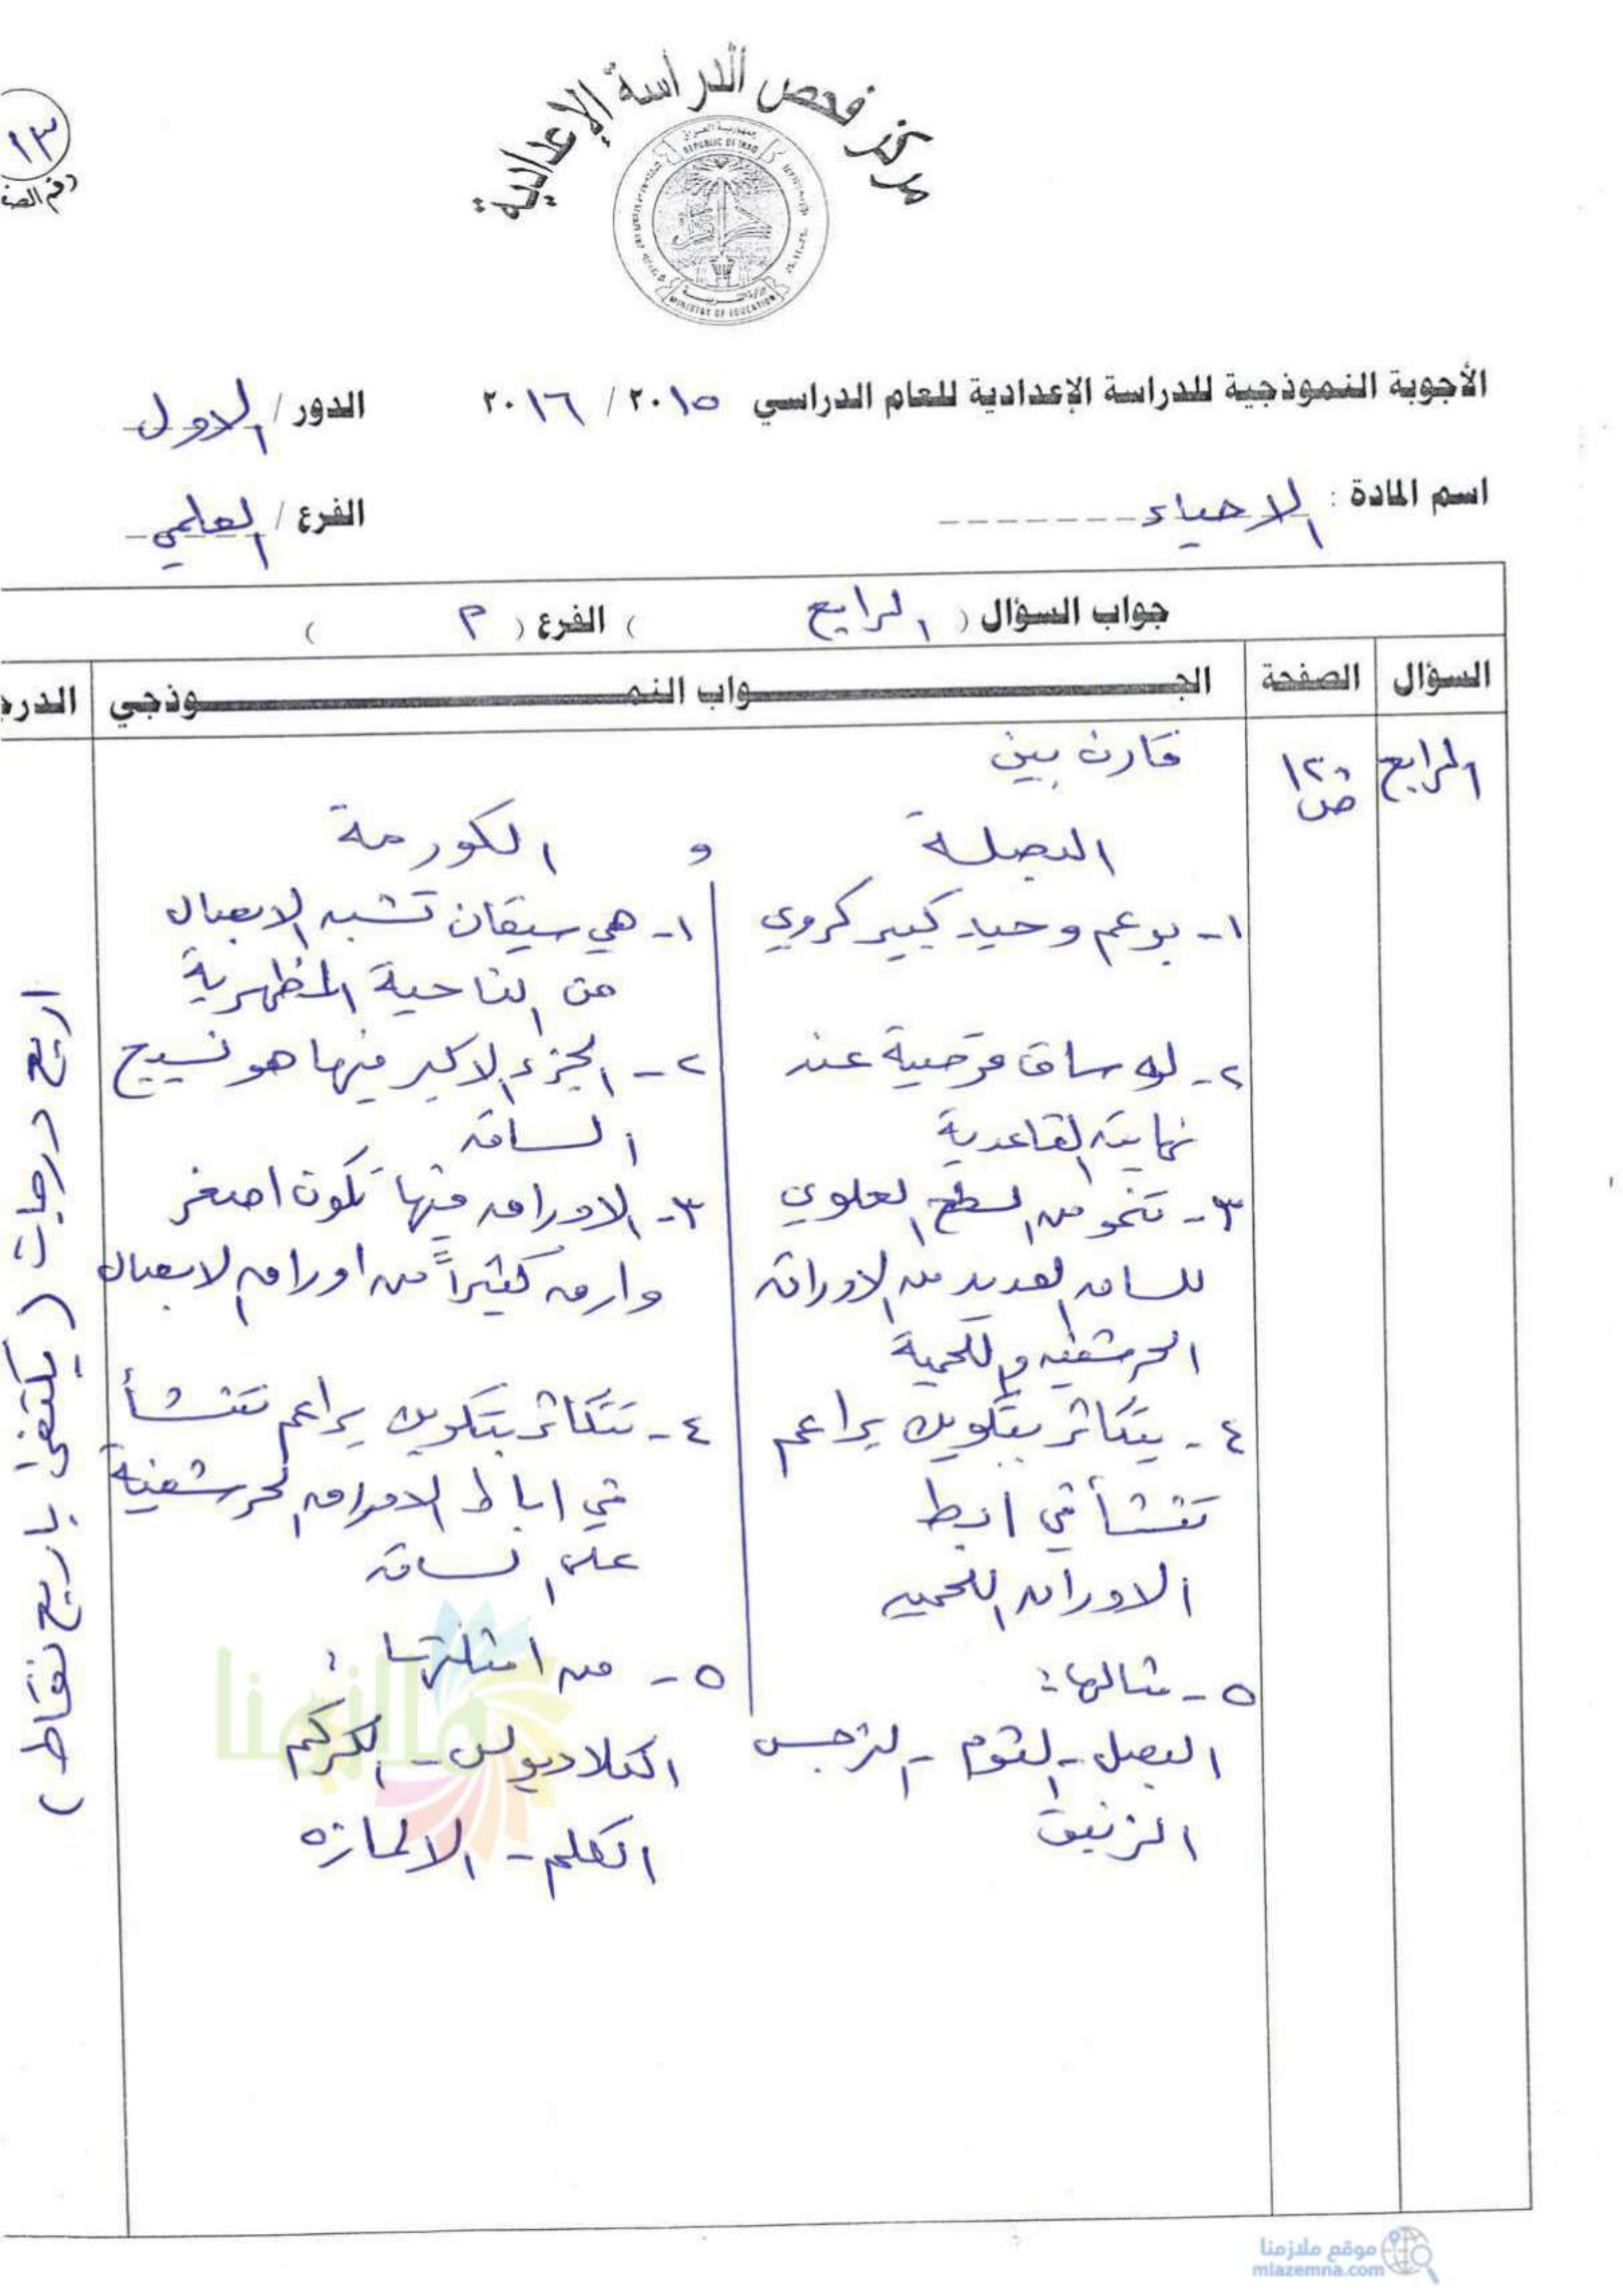 مركز فحص الدراسة الإعدادية
جمهورية العراق
REPUBLIC OF IRAQ
وزارة التربية
MINISTRY OF EDUCATION
١٣
رقم الصف
الأجوبة النموذجية للدراسة الإعدادية للعام الدراسي ٢٠١٥ / ٢٠١٦ الدور / الاول
اسم المادة : الاحياء الفرع / العلمي
جواب السؤال ( الرابع ) الفرع ( م )
السؤال الصفحة الجـــواب النمـــوذجي الدرج
الرابع
١٢٠
ص
قارن بين
البصلة و الكورمة
١- برعم وحيد كبير كروي
٢- له ساق قرصية عند
نهايته القاعدية
٣- تنمو من السطح العلوي
للساق العديد من الاوراق
الحرشفيه واللحمية
٤- يتكاثر بتكوين براعم
تنشأ في ابط
الاوراق اللحميه
٥- مثالها:
البصل - الثوم - النرجس
الزنبق
١- هي سيقان تشبه الابصال
من الناحية المظهرية
٢- الجزء الاكبر منها هو نسيج
الساق
٣- الاوراق فيها تكون اصغر
وارق كثيراً من اوراق الابصال
٤- تتكاثر بتكوين براعم تنشأ
في اباط الاوراق الحرشفية
على الساق
٥- من امثلتها :
الكلاديولس - الكركم
القلم - الالمازه
اربع درجات ( يكتفى باربع نقاط )
ملازمنا
موقع ملازمنا
mlazemna.com